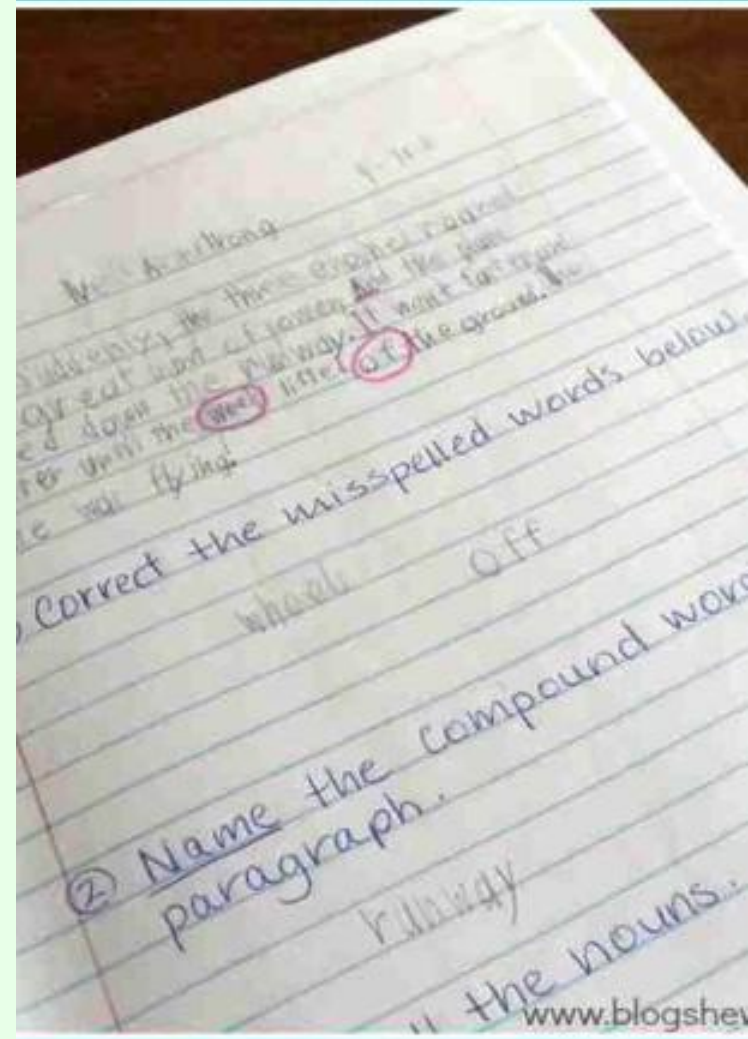 Neil Armstrong
Suddenly, the three engined
great of power. And the plane
ed down the runway. It went faster and
ter until the weel lifted of the ground. The
ne was flying!
Correct the misspelled words below.
wheel off
② Name the compound word
paragraph.
runway
the nouns.
www.blogshew